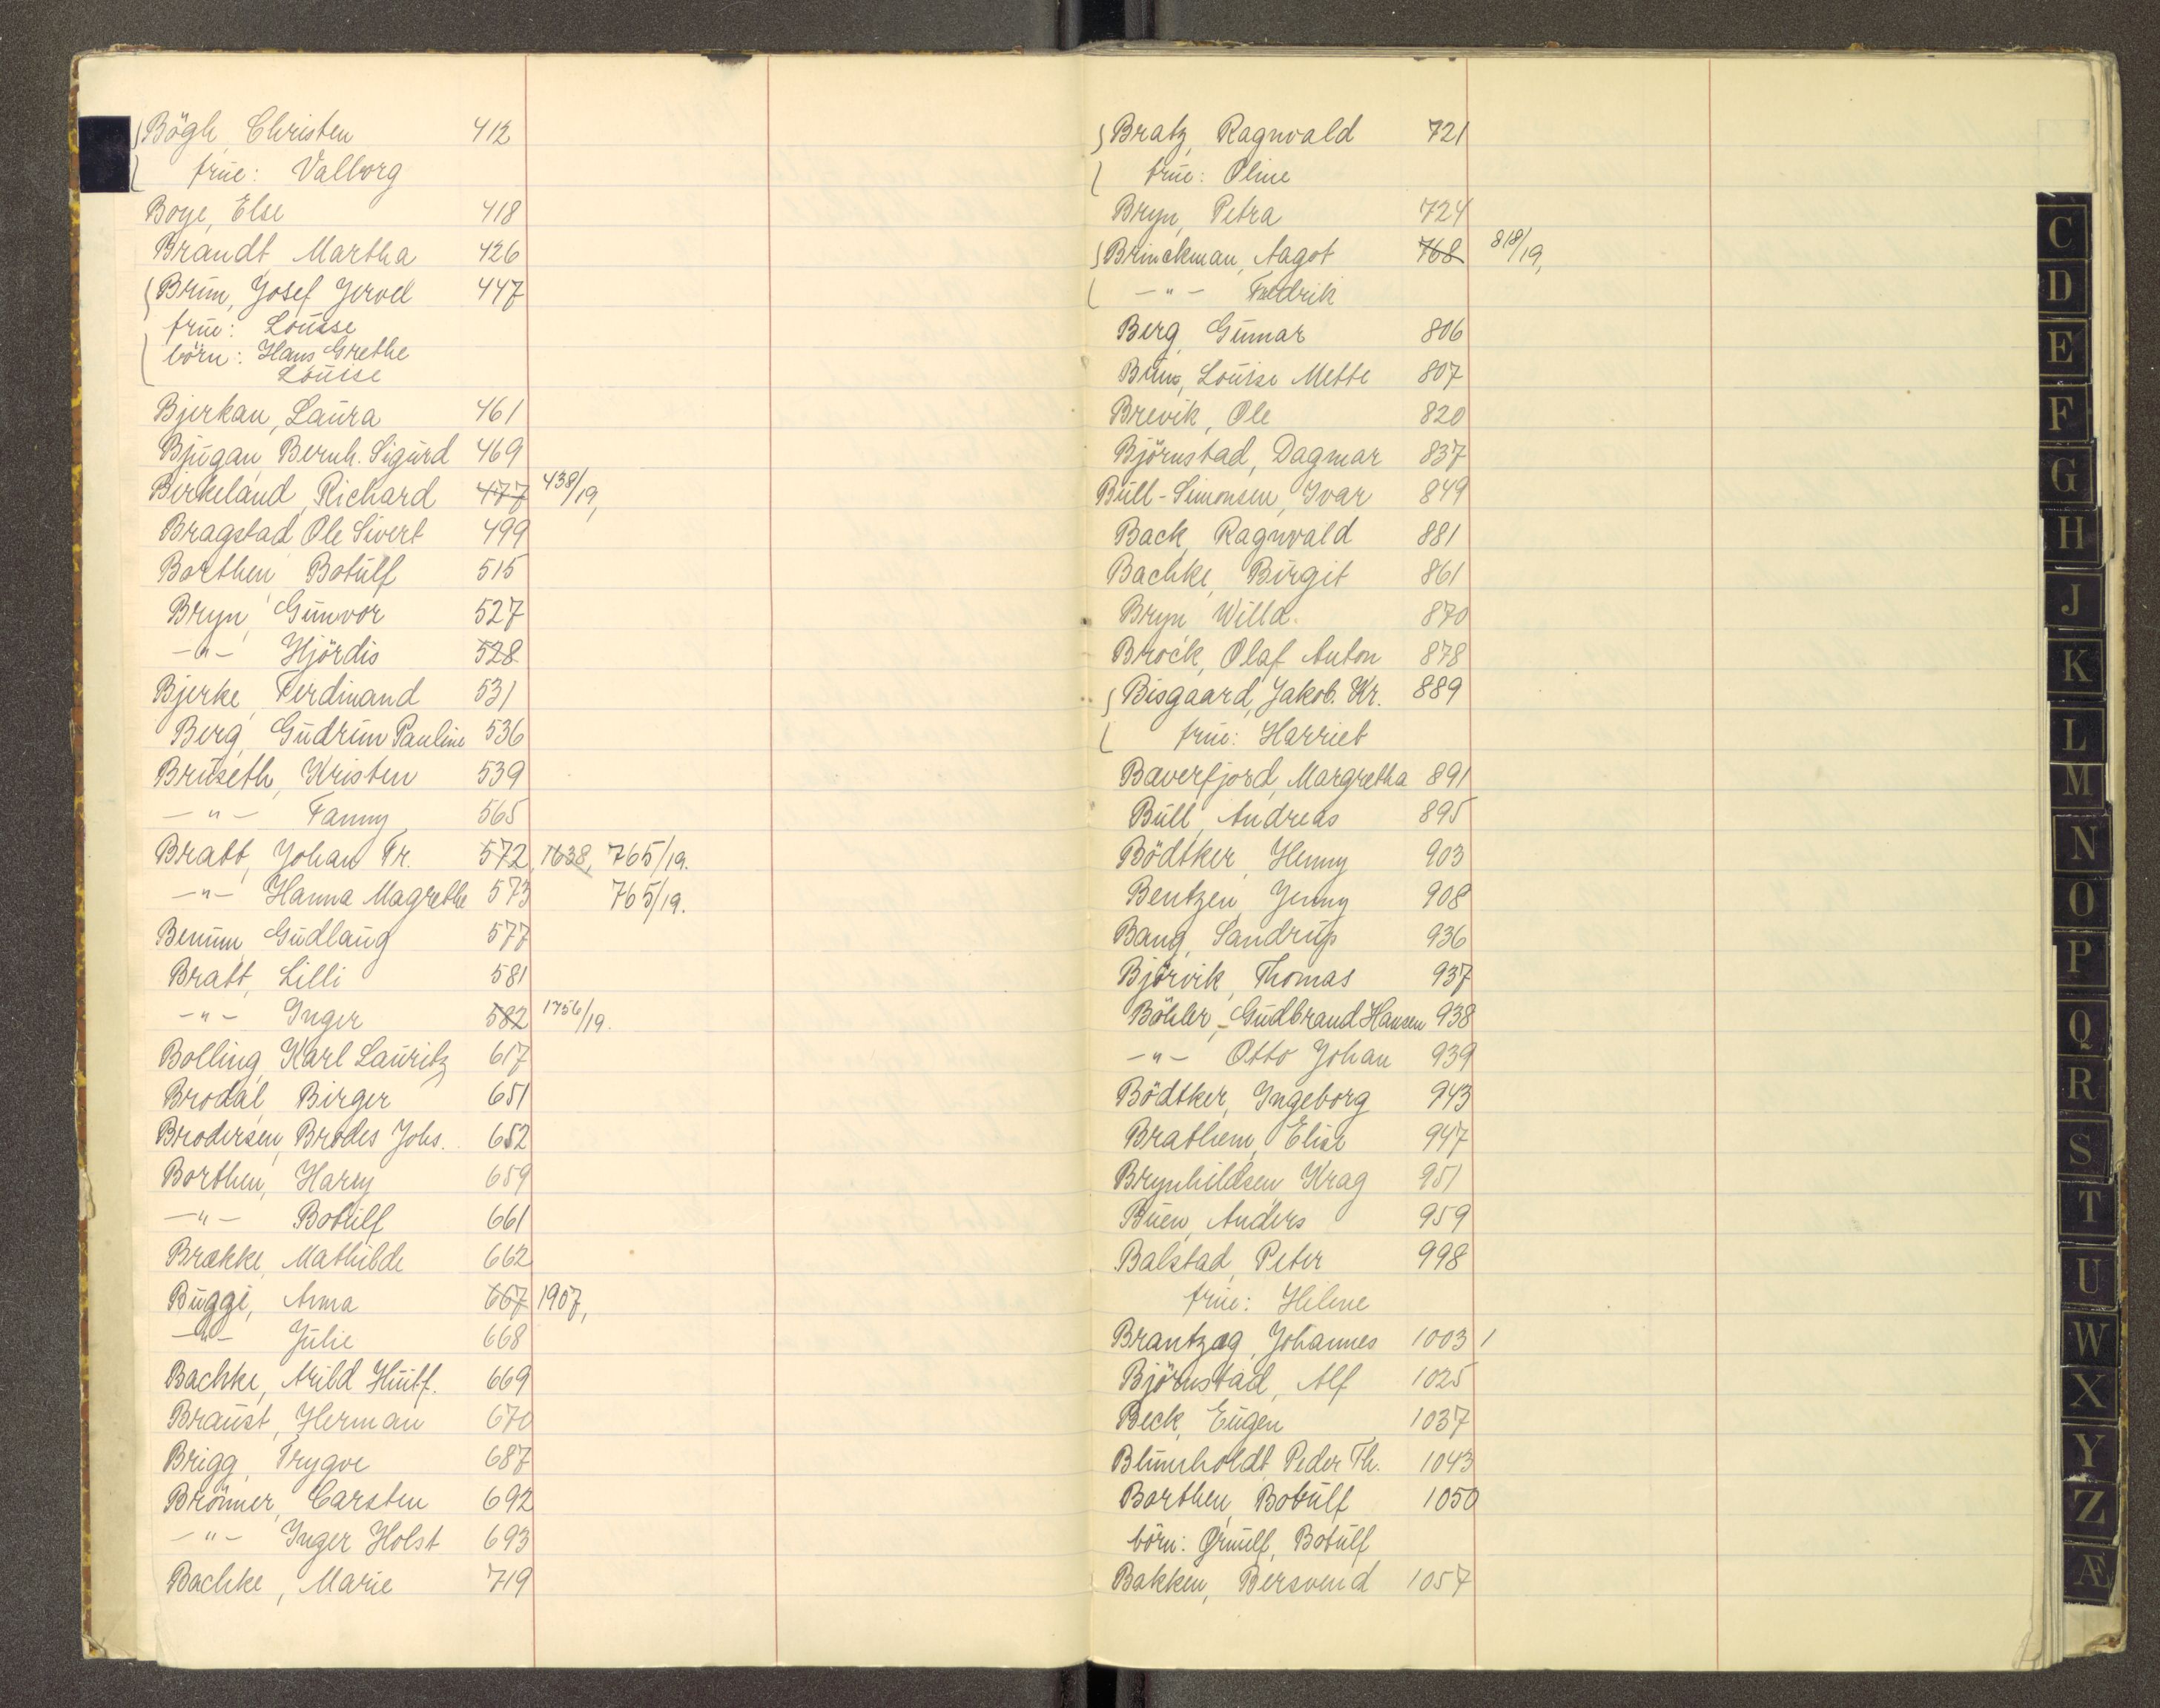 Bögh, Christen 412
frue: Valborg
Boye, Else 418
Brandt, Martha 426
Brun, Josef Jervel 447
frue: Louise
börn: Hans Grethe
Louise
Bjerkan, Laura 461
Bjugan, Bernh. Sigurd 469
Birkeland, Richard 477 438/19,
Bragstad Ole Sivert 499
Borthen Botulf 515
Bryn, Gunvor 527
-"- Hjördis 528
Bjerke, Ferdinand 531
Berg, Gudrun Pauline 536
Bruseth, Kristen 539
-"- Fanny 565
Bratt, Johan Fr. 572, 1638, 765/19.
-"- Hanna Magrethe 573 765/19.
Benum, Gudlaug 577
Bratt, Lilli 581
-"- Inger 582 1756/19.
Bolling, Karl Lauritz 617
Brodal, Birger 651
Brodersen, Brodes Johs. 652
Borthen, Harry 659
-"- Botulf 661
Brække, Mathilde 662
Buggi, Anna 667 1907,
-"- Julie 668
Bachke, Arild Huitf. 669
Braust, Herman 670
Brigg, Trygve 687
Brönner, Carsten 692
-"- Inger Holst 693
Bachke, Marie 719
Bratz, Ragnvald 721
frue: Oline
Bryn, Petra 724
Brinckman, Aagot 768 818/19,
-"- Fredrik
Berg, Gunnar 806
Bruns, Louise Mette 807
Brevik, Ole 820
Björnstad, Dagmar 837
Bull-Simonsen, Ivar 849
Back, Ragnvald 881
Bachke, Birgit 861
Bryn Willa. 870
Brock, Olaf Anton 878
Bisgaard, Jakob. Kr. 889
frue: Harriet
Bæverfjord, Margretha 891
Bull, Andreas 895
Bödtker, Henny 903
Bentzen, Jenny 908
Bang, Sandrup 936
Björvik, Thomas 937
Böhler, Gudbrand Hansen 938
-"- Otto Johan 939
Bödtker, Ingeborg 943
Brathem, Elise 947
Brynhildsen Krag 951
Buen, Anders 959
Balstad, Peter 998
frue: Helene
Brantzæg, Johannes 1003 1
Björnstad, Alf 1025
Beck, Eugen 1037
Blumholdt Peder Th. 1043
Borthen, Botulf 1050
börn: Ørnulf, Botulf
Bakken, Bersvend 1057
C
D
E
F
G
H
J
K
L
M
N
O
P
Q
R
S
T
U
W
X
Y
Z
Æ